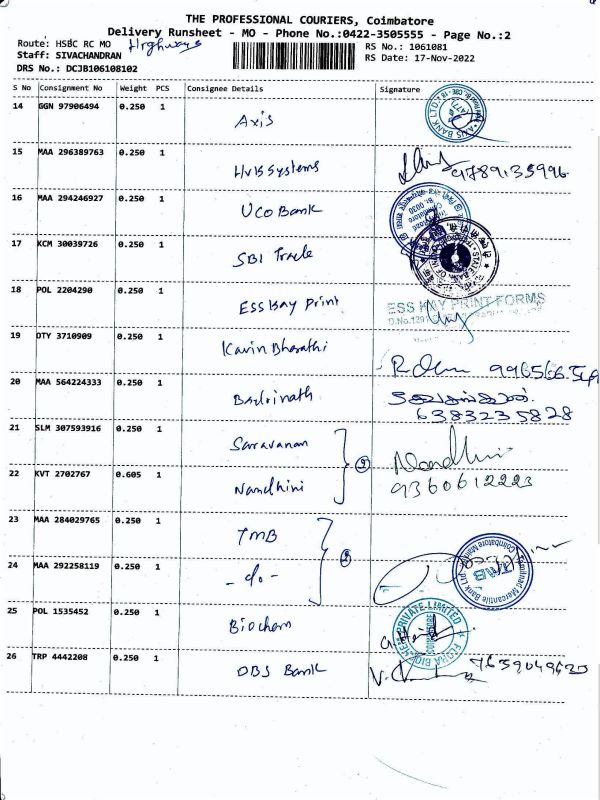 THE PROFESSIONAL COURIERS, Coimbatore
Delivery Runsheet - MO - Phone No.:0422-3505555 - Page No.:2
Route: HSBC RC MO Highways
RS No.: 1061081
Staff: SIVACHANDRAN
RS Date: 17-Nov-2022
DRS No.: DCJB106108102
S No Consignment No Weight PCS Consignee Details Signature
14 GGN 97906494 0.250 1 Axis
15 MAA 296389763 0.250 1 Systems 9789135996
16 MAA 294246927 0.250 1 UCO Bank
17 KCM 30039726 0.250 1 SBI Trade
18 POL 2204290 0.250 1 Ess Kay Print ESS KAY PRINT FORMS
19 DTY 3710909 0.250 1 Kavin Bharathi
20 MAA 564224333 0.250 1 Badrinath
6383235828
21 SLM 307593916 0.250 1 Saravanan Nandhini
22 KVT 2702767 0.605 1 Nandhini 9360612223
23 MAA 284029765 0.250 1 TMB
24 MAA 292258119 0.250 1 - do - Tamilnad Mercantile Bank Ltd TMB
25 POL 1535452 0.250 1 Biochem
26 TRP 4442208 0.250 1 DBS Bank